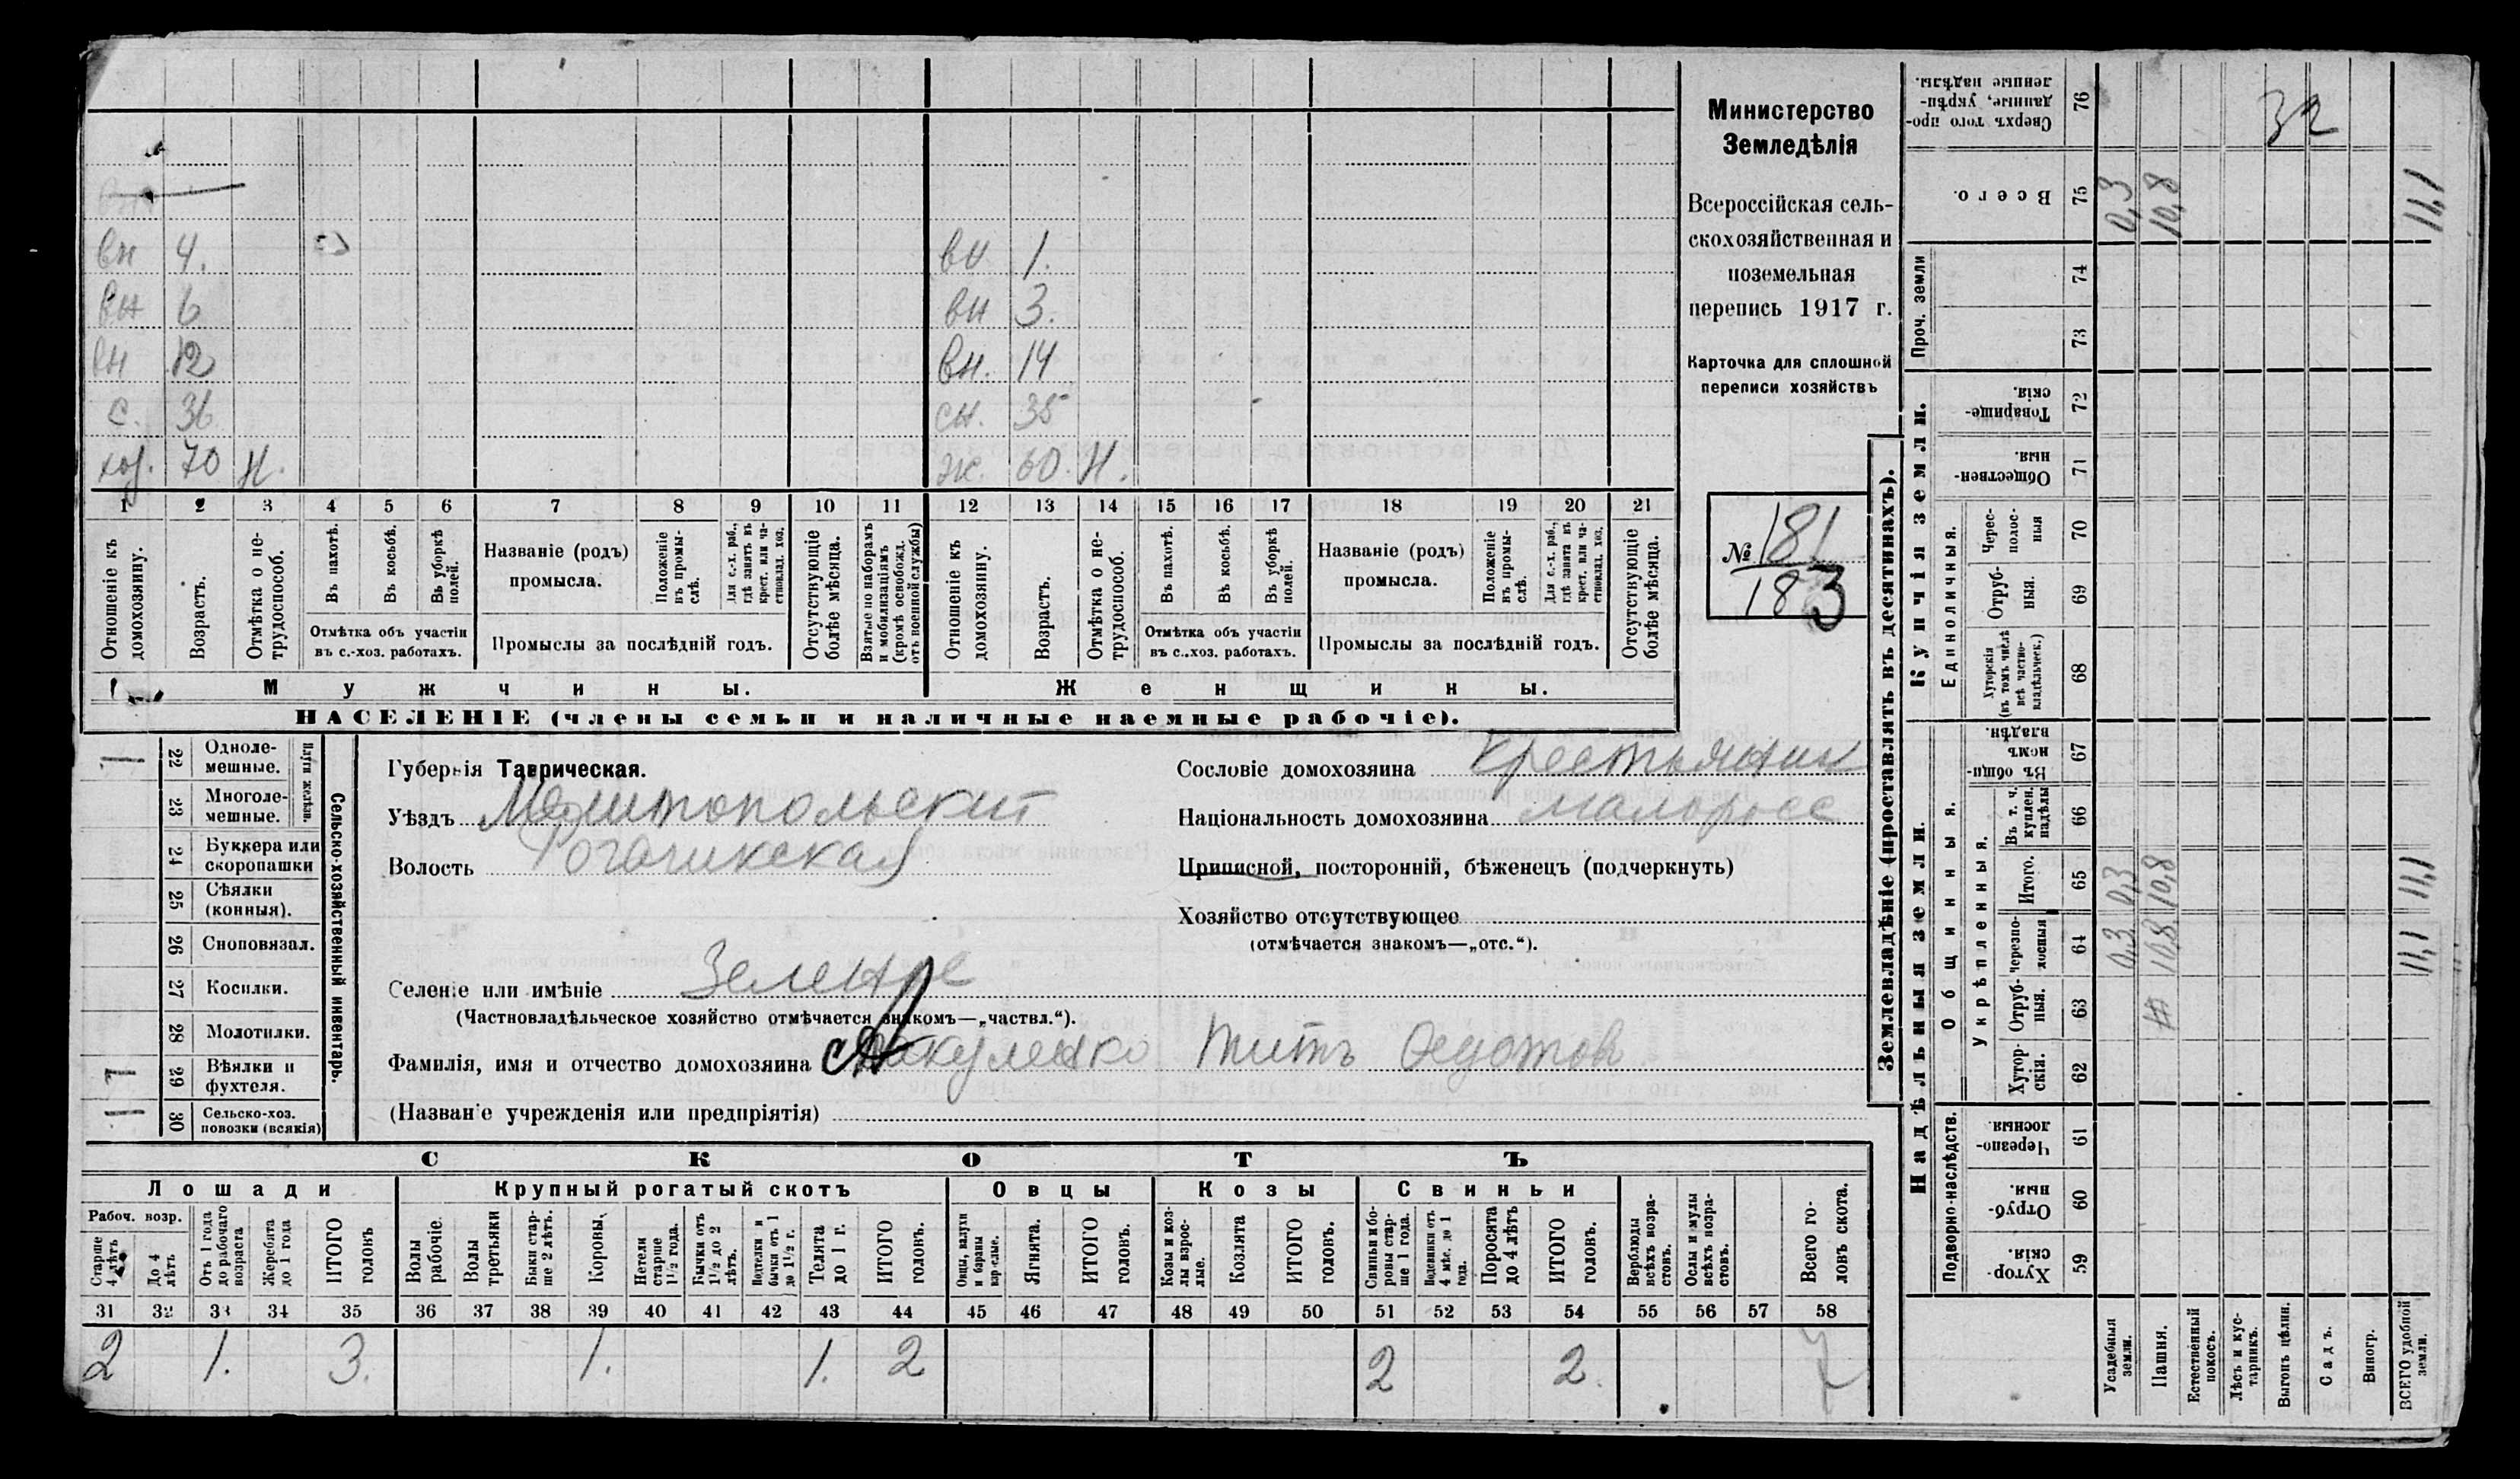 Министерство
Земледѣлія
Всероссійская сель-
скохозяйственная и
поземельная
перепись 1917 г.
Карточка для сплошной
переписи хозяйствъ
№ 181
183
вн 4. вн 1.
вн 6 вн 3.
вн 12 вн. 14
с. 36 сн. 35
хоз. 70 н. ж. 60. н.
1 2 3 4 5 6 7 8 9 10 11 12 13 14 15 16 17 18 19 20 21
Отношеніе къ домохозяину.
Возрастъ.
Отмѣтка о не-трудоспособ.
Въ пахотѣ.
Въ косьбѣ.
Въ уборкѣ полей.
Отмѣтка объ участіи
въ с.-хоз. работахъ.
Названіе (родъ)
промысла.
Положеніе въ промы-слѣ.
Для с.-х. раб., гдѣ занятъ въ крест. или ча-стновлад. хоз.
Промыслы за послѣдній годъ.
Отсутствующіе болѣе мѣсяца.
Взятые по наборамъ и мобилизаціямъ (кромѣ освобожд. отъ военной службы)
Отношеніе къ домохозяину.
Возрастъ.
Отмѣтка о не-трудоспособ.
Въ пахотѣ.
Въ косьбѣ.
Въ уборкѣ полей.
Отмѣтка объ участіи
въ с.-хоз. работахъ.
Названіе (родъ)
промысла.
Положеніе въ промы-слѣ.
Для с.-х. раб., гдѣ занята въ крест. или ча-стновлад. хоз.
Промыслы за послѣдній годъ.
Отсутствующіе болѣе мѣсяца.
Мужчины. Женщины.
НАСЕЛЕНІЕ (члены семьи и наличные наемные рабочіе).
Сельско-хозяйственный инвентарь.
Плуги желѣзн.
1 22 Одноле-мешные.
23 Многоле-мешные.
24 Буккера или скоропашки
25 Сѣялки (конныя).
26 Сноповязал.
27 Косилки.
28 Молотилки.
1 29 Вѣялки и фухтеля.
1 30 Сельско-хоз. повозки (всякія)
Губернія Таврическая.
Уѣздъ Мелитопольскій
Волость Рогачикская
Сословіе домохозяина крестьянин
Національность домохозяина малоросс
Приписной, посторонній, бѣженецъ (подчеркнуть)
Хозяйство отсутствующее
(отмѣчается знакомъ—„отс.“).
Селеніе или имѣніе Зеленое
(Частновладѣльческое хозяйство отмѣчается знакомъ—„частвл.“).
Фамилія, имя и отчество домохозяина Титъ Федотов
(Названіе учрежденія или предпріятія)
СКОТЪ
Лошади Крупный рогатый скотъ Овцы Козы Свиньи
Рабоч. возр.
Старше 4 лѣтъ
До 4 лѣтъ
Отъ 1 года до рабочаго возраста
Жеребята до 1 года
ИТОГО головъ
Волы рабочіе.
Волы третьяки
Быки стар-ше 2 лѣтъ.
Коровы.
Нетели старше 1 1/2 года.
Бычки отъ 1 1/2 до 2 лѣтъ.
Подтелки и бычки отъ 1 до 1 1/2 г.
Телята до 1 г.
ИТОГО головъ.
Овцы, валухи и бараны взрослые.
Ягнята.
ИТОГО головъ.
Козы и коз-лы взрос-лые.
Козлята
ИТОГО головъ.
Свиньи и бо-ровы стар-ше 1 года.
Подсвинки отъ 4 мѣс. до 1 года.
Поросята до 4 лѣтъ
ИТОГО головъ.
Верблюды всѣхъ возра-стовъ.
Ослы и мулы всѣхъ возра-стовъ.
Всего го-ловъ скота.
31 32 33 34 35 36 37 38 39 40 41 42 43 44 45 46 47 48 49 50 51 52 53 54 55 56 57 58
2 1. 3. 1. 1. 2 2 2. 7
Землевладѣніе (проставлять въ десятинахъ).
Купчія земли.
Надѣльныя земли.
Сверхъ того про-данные, укрѣп-ленные надѣлы. 76 32
Всего. 75 0,3 10,8 11,1
Проч. земли 74
73
Товарище-скія. 72
Обществен-ныя. 71
Единоличныя.
Черес-полос-ныя 70
Отруб-ныя. 69
Хуторскія (въ томъ числѣ всѣ частно-владѣльческ.) 68
Общинныя.
Въ общи-номъ владѣн. 67
Укрѣпленныя.
Въ т. ч. куплен. надѣлы 66
Итого. 65 0,3 10,8 11,1
черезпо-лосныя 64 0,3 10,8 11,1
Отруб-ныя. 63
Хутор-скія. 62
Подворно-наслѣдств.
Черезпо-лосныя. 61
Отруб-ныя. 60
Хутор-скія. 59
Усадебныя земли.
Пашня.
Естественный покосъ.
Лѣсъ и кус-тарникъ.
Выгонъ цѣлин.
Садъ.
Виногр.
ВСЕГО удобной земли.